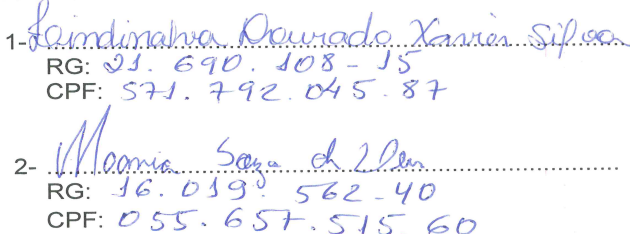 1- Laindinalva Dourado Xavier Silva
RG: 21. 690. 108 - 15
CPF: 571. 792. 045. 87
2- Souza
RG: 16. 019. 562 - 40
CPF: 055. 657. 515 60